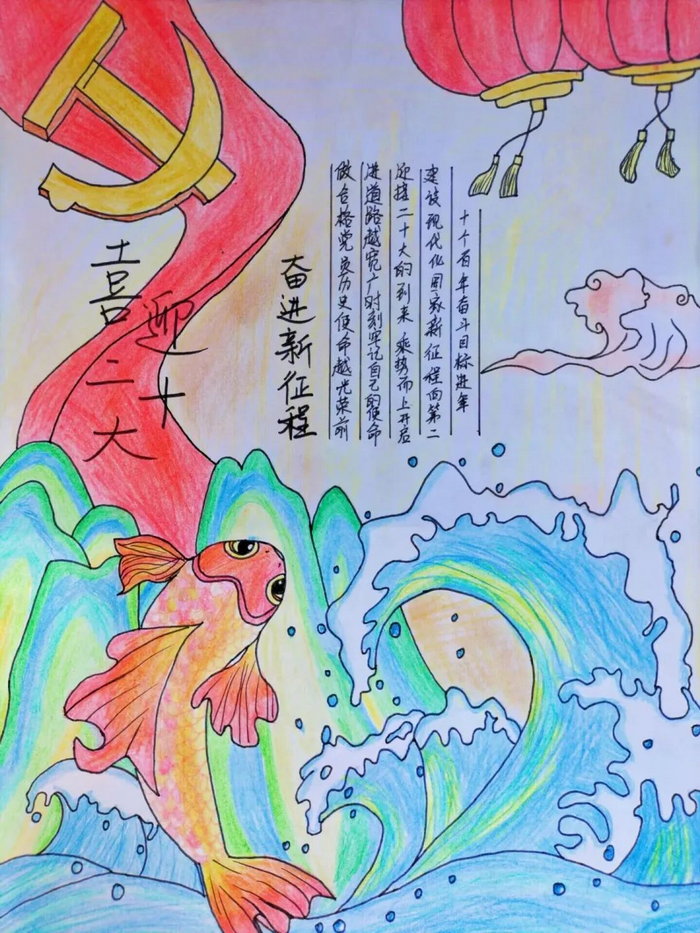 十个百年奋斗目标进年
建设现代化国家新征程向第二
迎接二十大的到来 乘势而上开启
进道路越宽广时刻牢记自己的使命
做合格党员历史使命越光荣前
奋进新征程
喜迎二十大